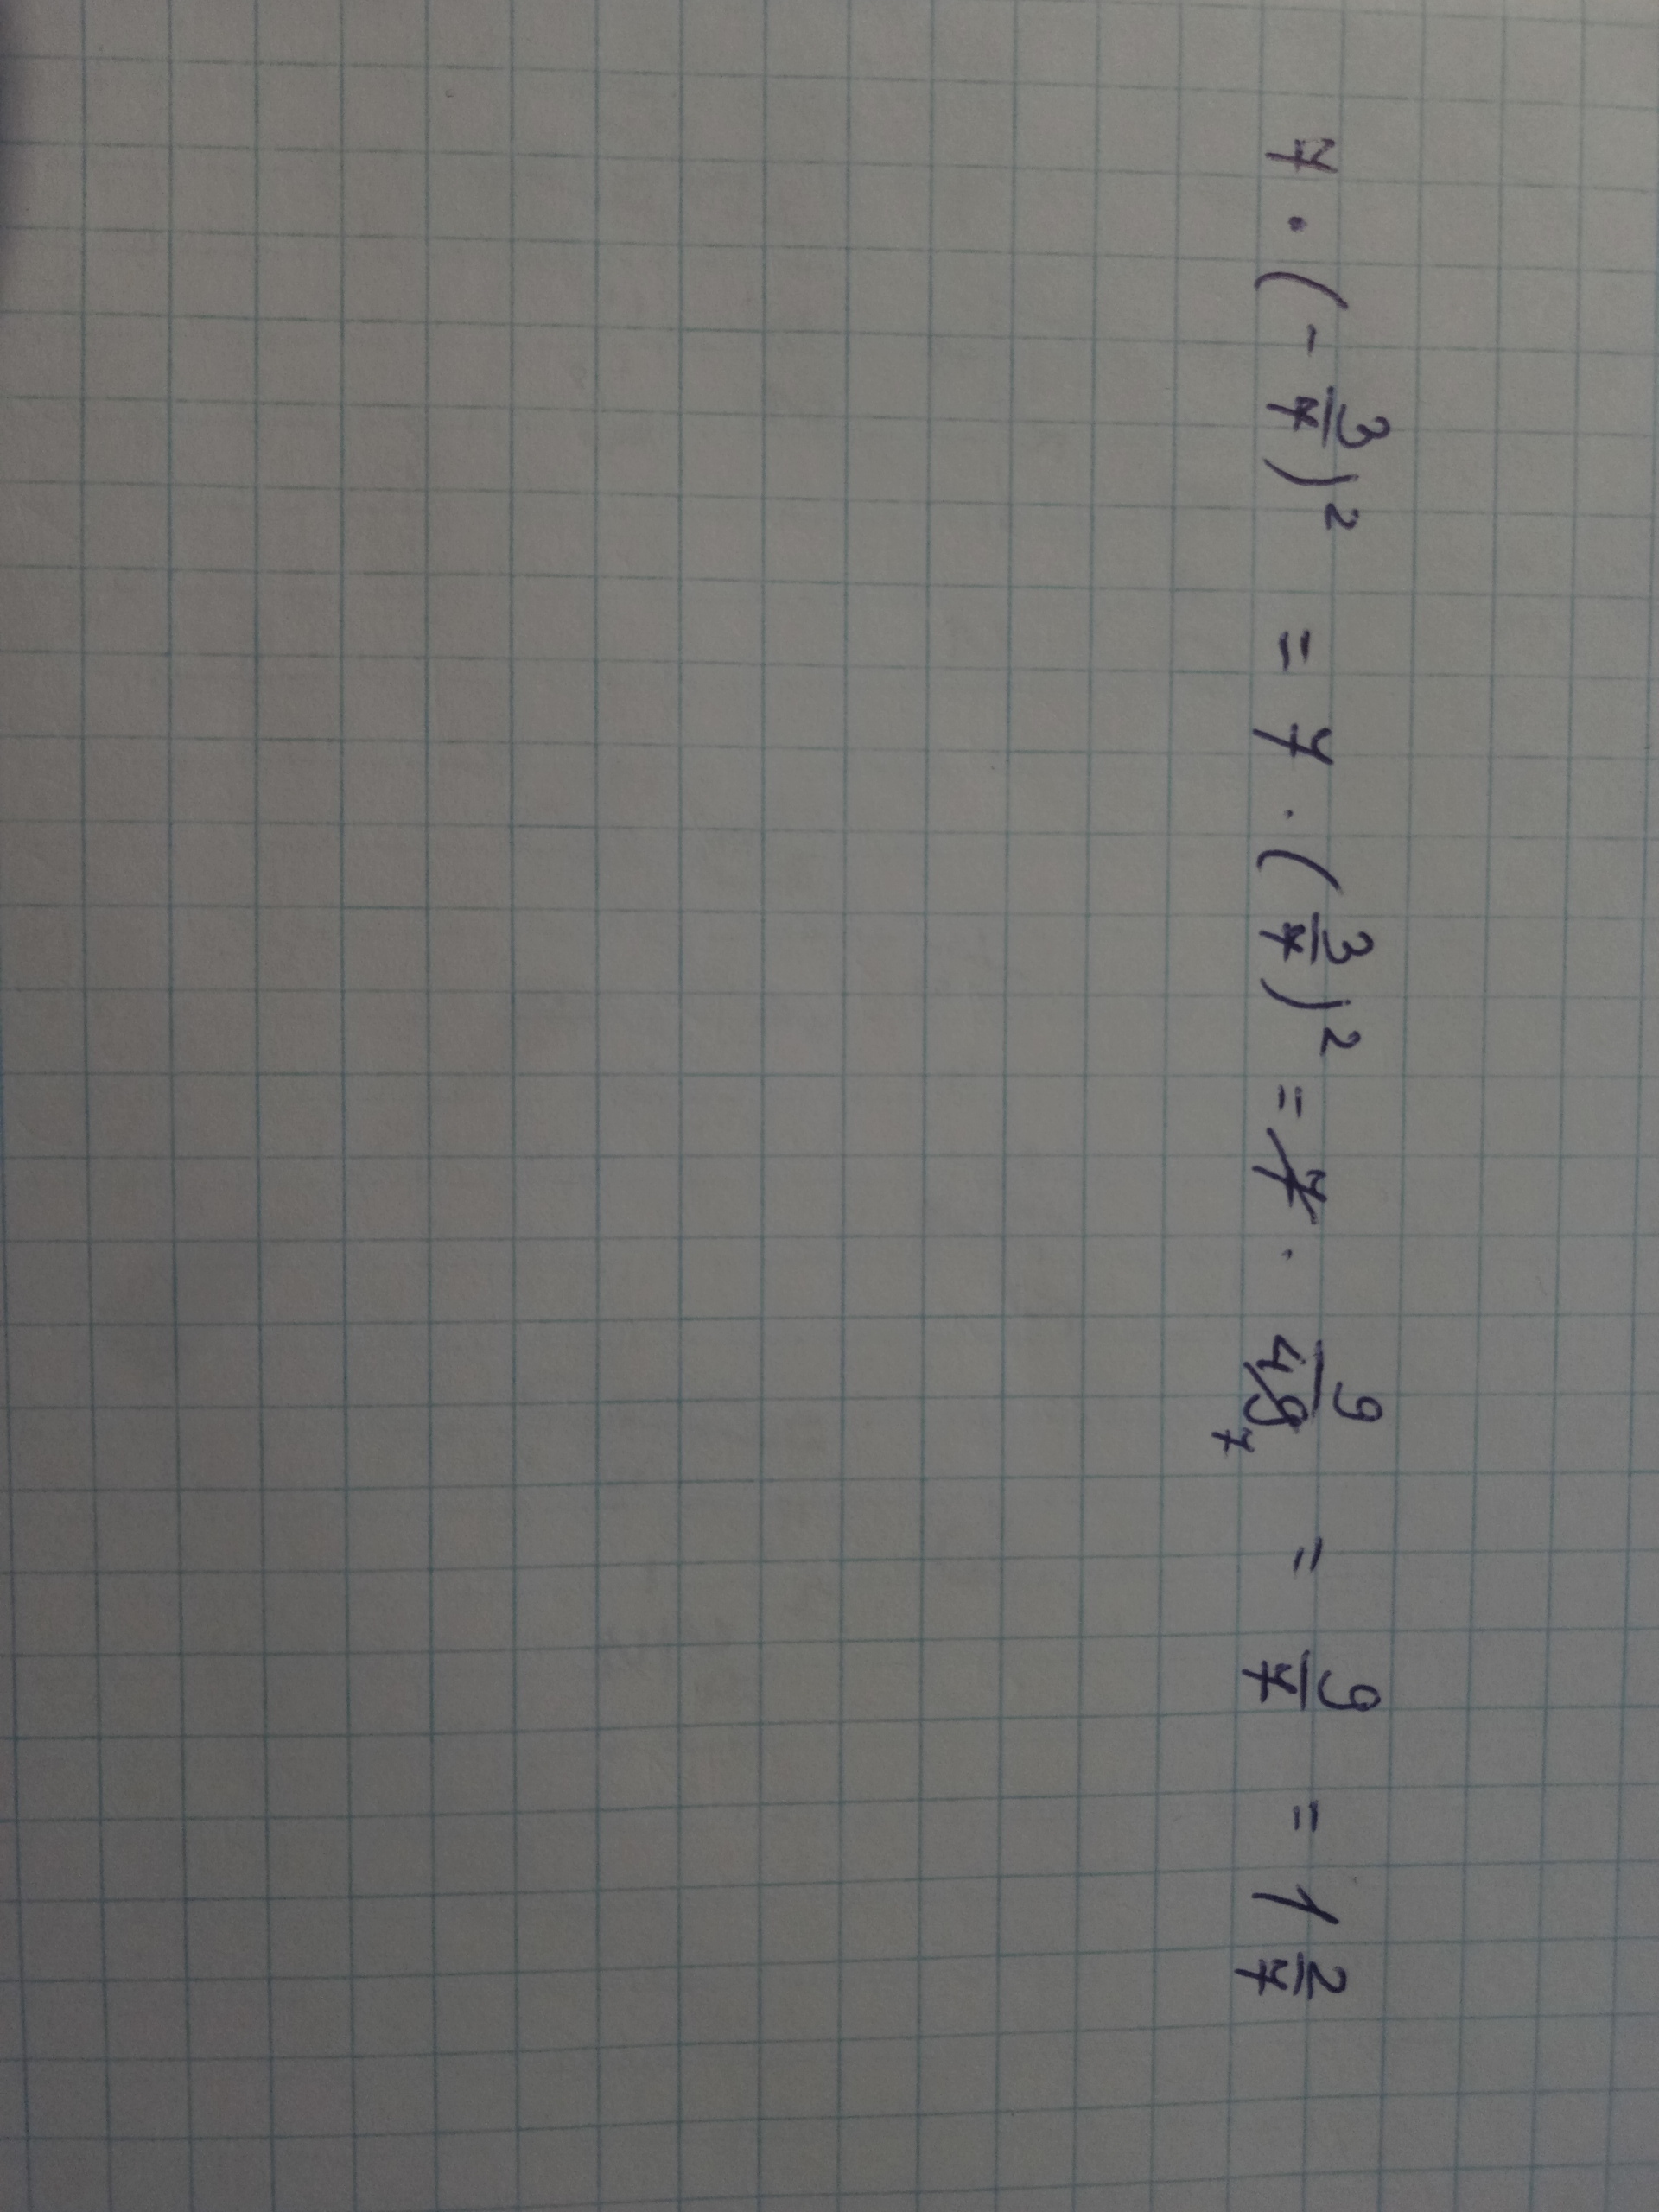 7 · (- 3/7)² = 7 · (3/7)² = 7 · 9/49 7 = 9/7 = 1 2/7